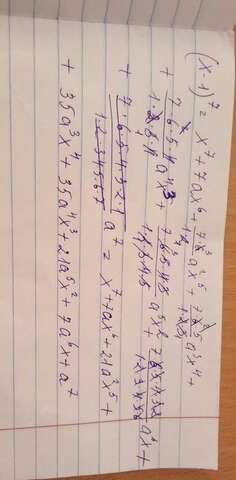 (x-1)⁷ = x⁷ + 7ax⁶ + 7·6/1·2 a²x⁵ + 7·6·5/1·2·3 a³x⁴ +
+ 7·6·5·4/1·2·3·4 a⁴x³ + 7·6·5·4·3/1·2·3·4·5 a⁵x² + 7·6·5·4·3·2/1·2·3·4·5·6 a⁶x +
+ 7·6·5·4·3·2·1/1·2·3·4·5·6·7 a⁷ = x⁷ + 7ax⁶ + 21a²x⁵ +
+ 35a³x⁴ + 35a⁴x³ + 21a⁵x² + 7a⁶x + a⁷